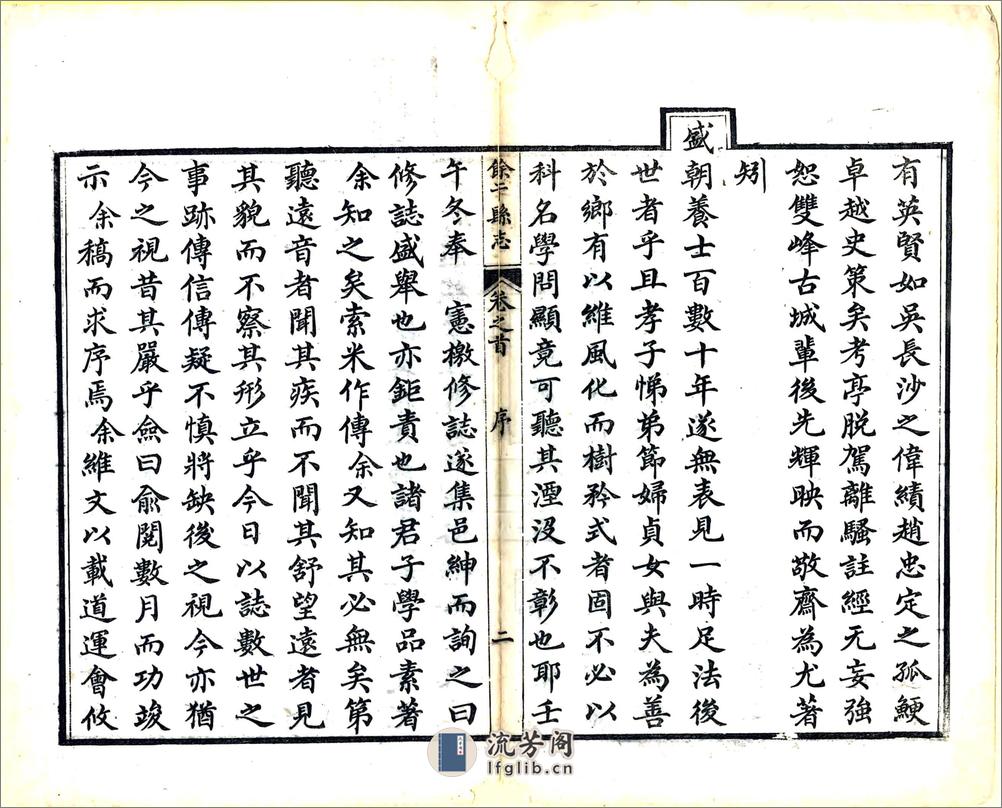 有英賢如吳長沙之偉績趙忠定之孤鯁
卓越史策矣考亭脫駕離騷註經无妄強
恕雙峰古城輩後先輝映而敬齋為尤著
矧
盛朝養士百數十年遂無表見一時足法後
世者乎且孝子悌弟節婦貞女與夫為善
於鄉有以維風化而樹矜式者固不必以
科名學問顯竟可聽其湮沒不彰也耶壬
餘干縣志 卷之首 序 二
午冬奉 憲檄修誌遂集邑紳而詢之曰
修誌盛舉也亦鉅責也諸君子學品素著
余知之矣索米作傳余又知其必無矣第
聽遠音者聞其疾而不聞其舒望遠者見
其貌而不察其形立乎今日以誌數世之
事跡傳信傳疑不慎將缺後之視今亦猶
今之視昔其嚴乎僉曰俞閱數月而功竣
示余稿而求序焉余維文以載道運會攸
流芳阁
lfglib.cn